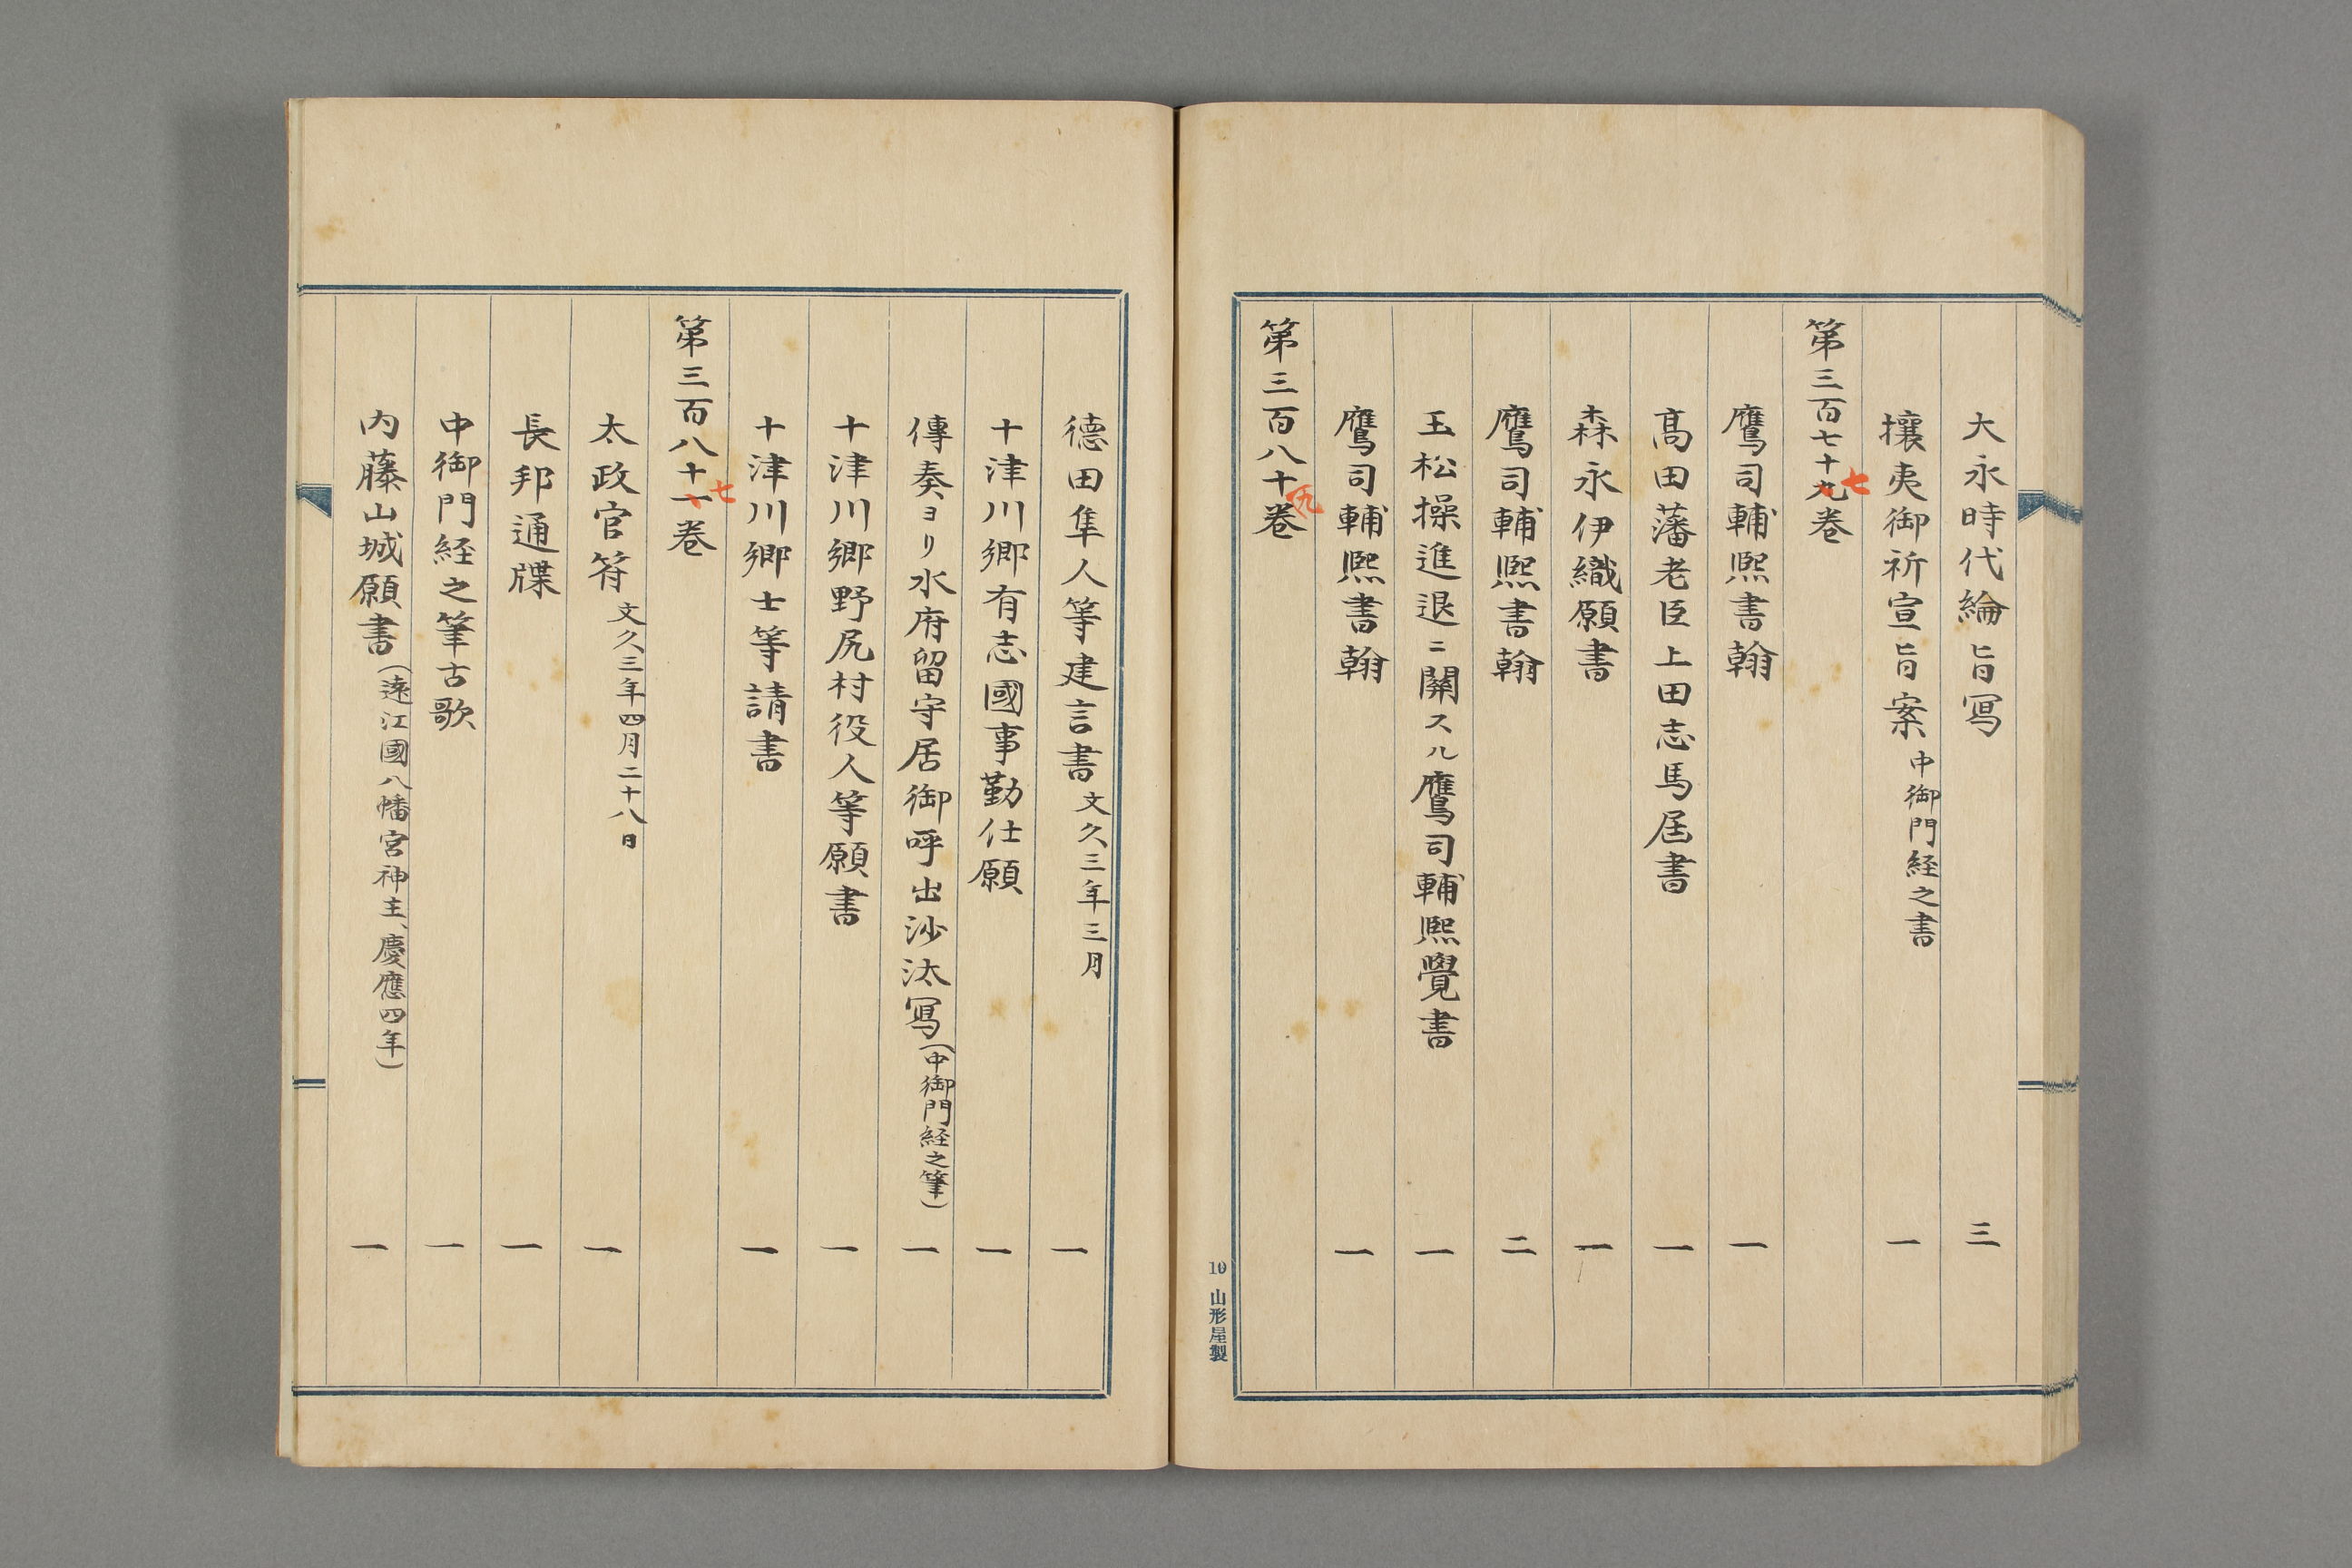 大永時代綸旨写 三
攘夷御祈宣旨案 中御門経之書 一
第三百七十九巻 七
鷹司輔熙書翰 一
髙田藩老臣上田志馬届書 一
森永伊織願書 一
鷹司輔熙書翰 二
玉松操進退ニ關スル鷹司輔熙覺書 一
鷹司輔熙書翰 一
第三百八十巻
10 山形屋製
徳田隼人等建言書 文久三年三月 一
十津川郷有志國事勤仕願 一
傳奏ヨリ水府留守居御呼出沙汰写(中御門経之筆) 一
十津川郷野尻村役人等願書 一
十津川郷士等請書 一
第三百八十一巻 七
太政官符 文久三年四月二十八日 一
長邦通牒 一
中御門経之筆古歌 一
内藤山城願書(遠江國八幡宮神主、慶應四年) 一